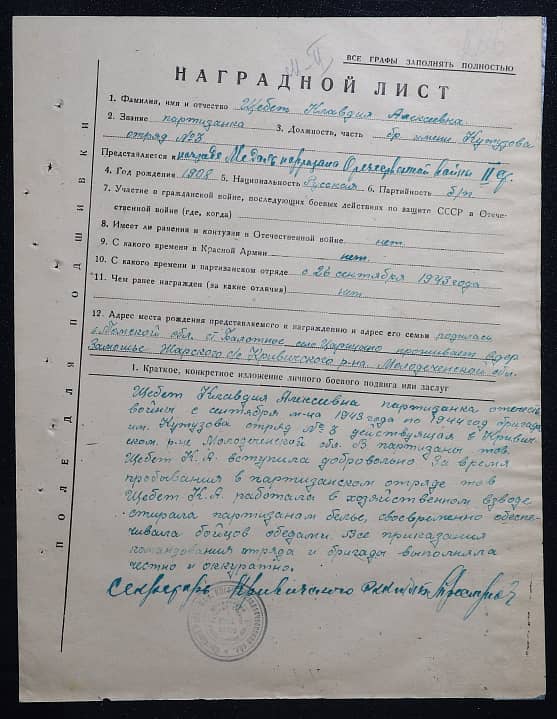 ВСЕ ГРАФЫ ЗАПОЛНЯТЬ ПОЛНОСТЬЮ
НАГРАДНОЙ ЛИСТ
1. Фамилия, имя и отчество Щебет Клавдия Алексеевна
2. Звание партизанка 3. Должность, часть бр имени Кутузова
отряд № 3
Представляется к награде Медаль партизана Отечественной войны II ст.
4. Год рождения 1908 5. Национальность Русская 6. Партийность б/п
7. Участие в гражданской войне, последующих боевых действиях по защите СССР в Отече-
ственной войне (где, когда)
8. Имеет ли ранения и контузии в Отечественной войне нет
9. С какого времени в Красной Армии нет.
10. С какого времени в партизанском отряде с 26 сентября 1943 года
11. Чем ранее награжден (за какие отличия) нет
12. Адрес места рождения представляемого к награждению и адрес его семьи родилась
Томской обл. ст Балотное село проживает
Замошье Жарского с/с Кривичского р-на. Молодеченской обл.
1. Краткое, конкретное изложение личного боевого подвига или заслуг
Щебет Клавдия Алексеевна партизанка отечеств
войны с сентября м-ца 1943 года по 1944 год бригады
им. Кутузова отряд № 3 действующая в Кривич-
ском р-не Молодеченской обл. В партизаны тов.
Щебет К.А. вступила добровольно За время
пробывания в партизанском отряде тов
Щебет К.А. работала в хозяйственном взводе
стирала партизанам белье, своевременно обеспе-
чивала бойцов обедами. Все приказания
командования отряда и бригады выполняла
честно и аккуратно.
Секретарь Кривичского
ПОЛЕ ДЛЯ ПОДШИВКИ